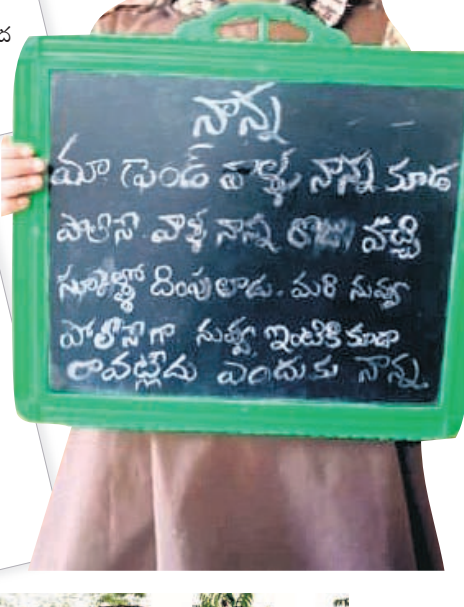 నాన్న
మా ఫ్రెండ్ వాళ్ళ నాన్న కూడ
పోలీసే వాళ్ళ నాన్న రోజు వచ్చి
స్కూళ్లో దింపుతాడు. మరి నువ్వు
పోలీసేగా నువ్వు ఇంటికి కూడా
రావట్లేదు ఎందుకు నాన్న